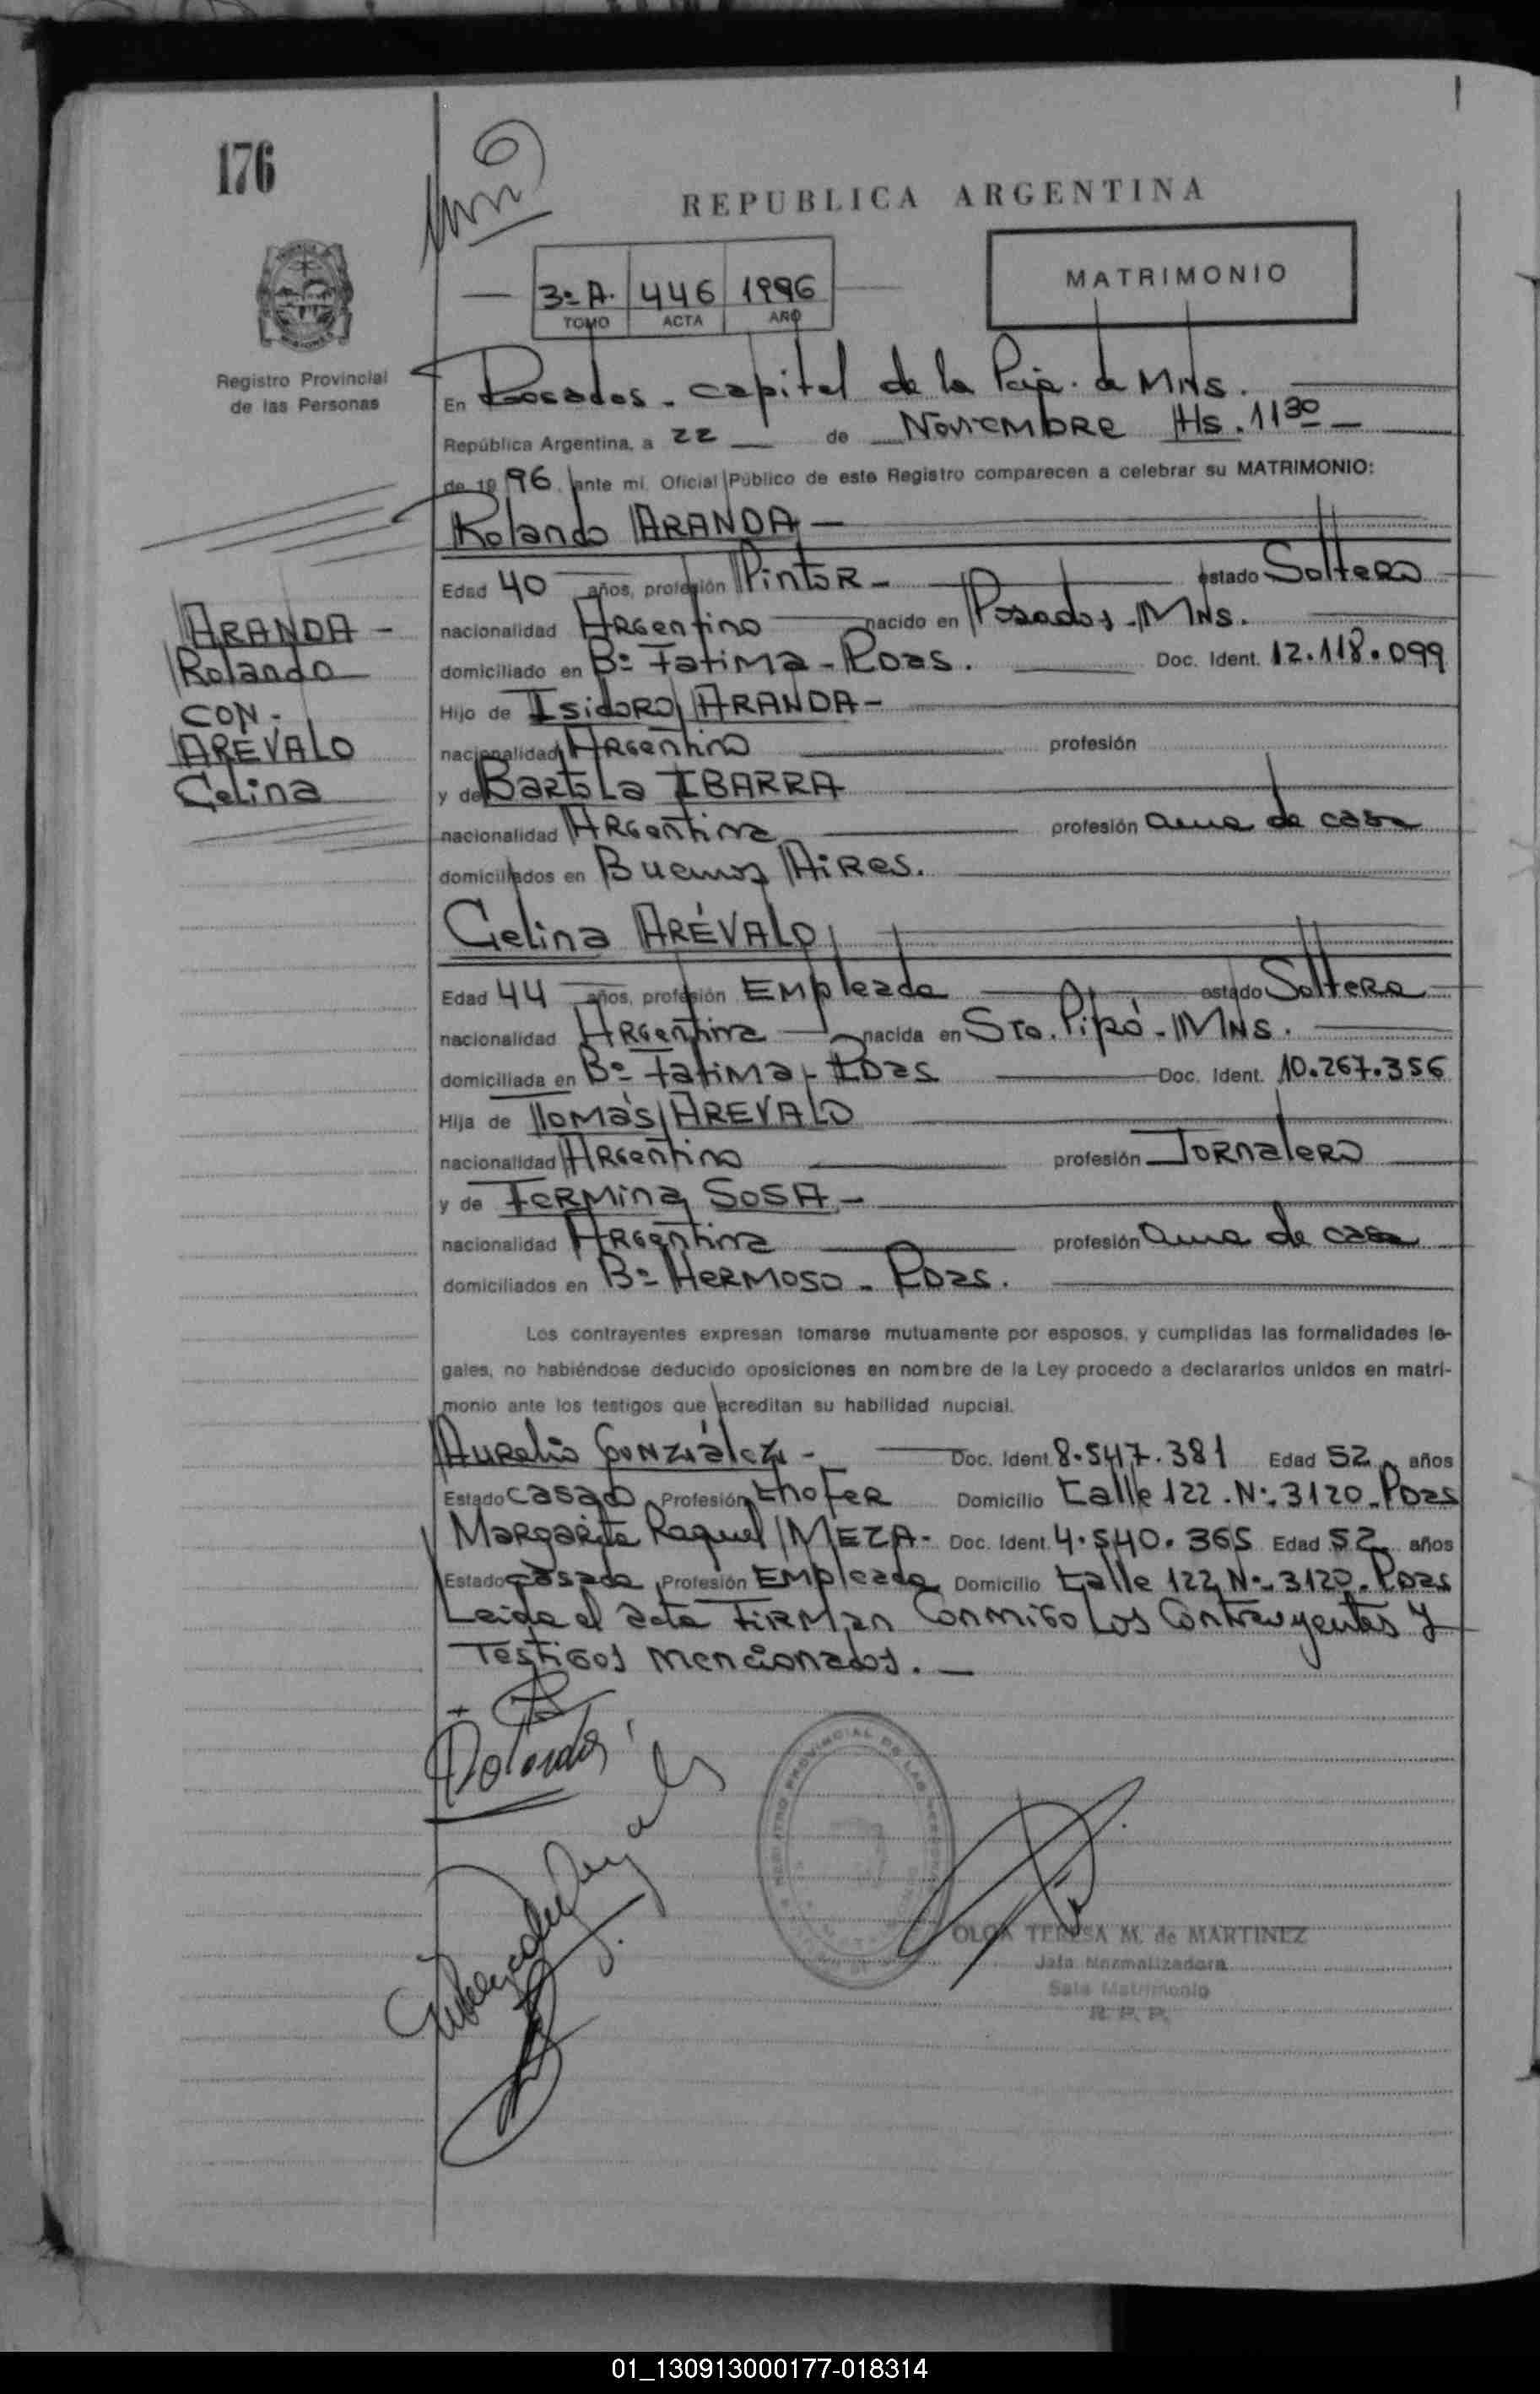 176
REPUBLICA ARGENTINA
3º A. 446 1996
TOMO ACTA AÑO
MATRIMONIO
Registro Provincial
de las Personas
En Posadas - capital de la Pcia. de MNS.
República Argentina, a 22 de NovieMbRe Hs. 11 30
de 19 96, ante mí, Oficial Público de este Registro comparecen a celebrar su MATRIMONIO:
Rolando ARANDA -
Edad 40 años, profesión PintoR - estado SolteRo
nacionalidad ARGentino nacido en Posadas - MNS.
domiciliado en Bº Fatima - Pdas. Doc. Ident. 12.118.099
Hijo de IsidoRo ARANDA -
nacionalidad ARGentino profesión
y de BaRtola IBARRA
nacionalidad ARGentina profesión ama de casa
domiciliados en Buenos AiRes.
ARANDA -
Rolando
CON -
AREVALO
Celina
Celina ARÉVALO
Edad 44 años, profesión EMpleada estado SolteRa
nacionalidad ARGentina nacida en Sto. Pipó - MNS.
domiciliada en Bº Fatima - Pdas Doc. Ident. 10.267.356
Hija de Tomás AREVALO
nacionalidad ARGentino profesión JoRnaleRo
y de FeRMina SOSA -
nacionalidad ARGentina profesión ama de casa
domiciliados en Bº HeRMoso - Pdas.
Los contrayentes expresan tomarse mutuamente por esposos, y cumplidas las formalidades le-
gales, no habiéndose deducido oposiciones en nombre de la Ley procedo a declararlos unidos en matri-
monio ante los testigos que acreditan su habilidad nupcial.
AuRelio GonzÁlez - Doc. Ident. 8.547.381 Edad 52 años
Estado casado Profesión choFeR Domicilio Calle 122 . Nº. 3120 - Pdas
MaRgaRita Raquel MEZA - Doc. Ident. 4.540.365 Edad 52 años
Estado casada Profesión EMpleada Domicilio Calle 122 Nº. 3120 - Pdas
Leida el acta FiRMan ConMiGo Los Contrayentes y
TestiGos Mencionados. -
Rolando
REGISTRO PROVINCIAL DE LAS PERSONAS
OLGA TERESA M. de MARTINEZ
Jefa Normalizadora
Sala Matrimonio
R. P. P.
01_130913000177-018314